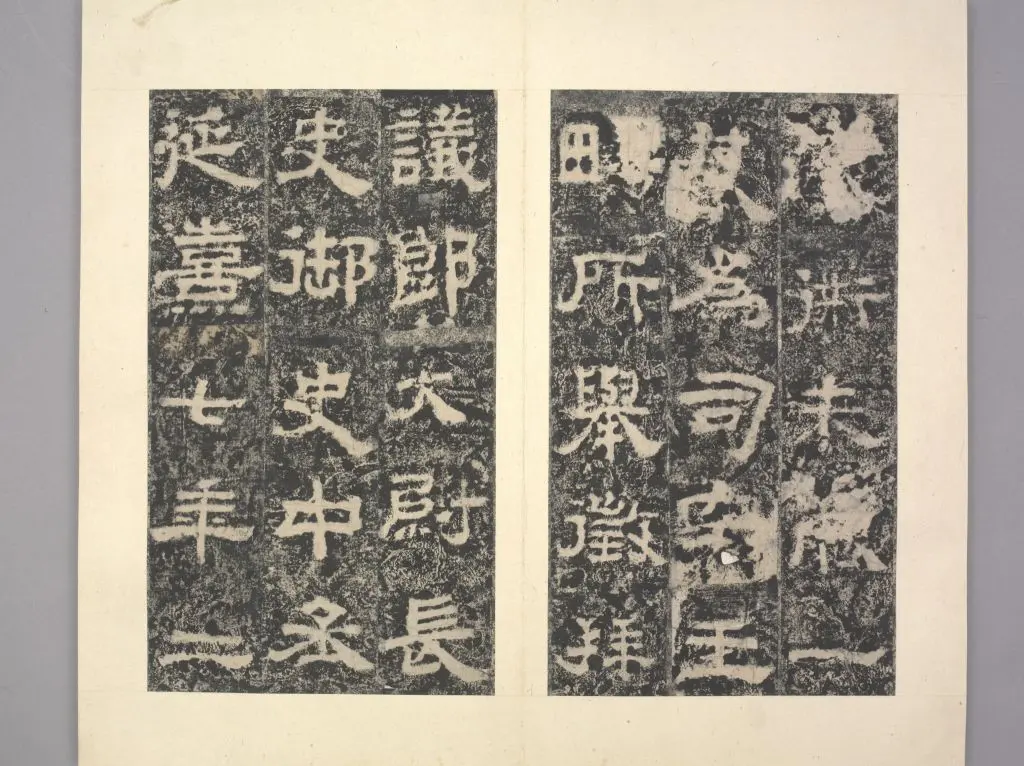 衖未能一
朞為司空王
暢所舉徵拜
議郎大尉長
史御史中丞
延熹七年二